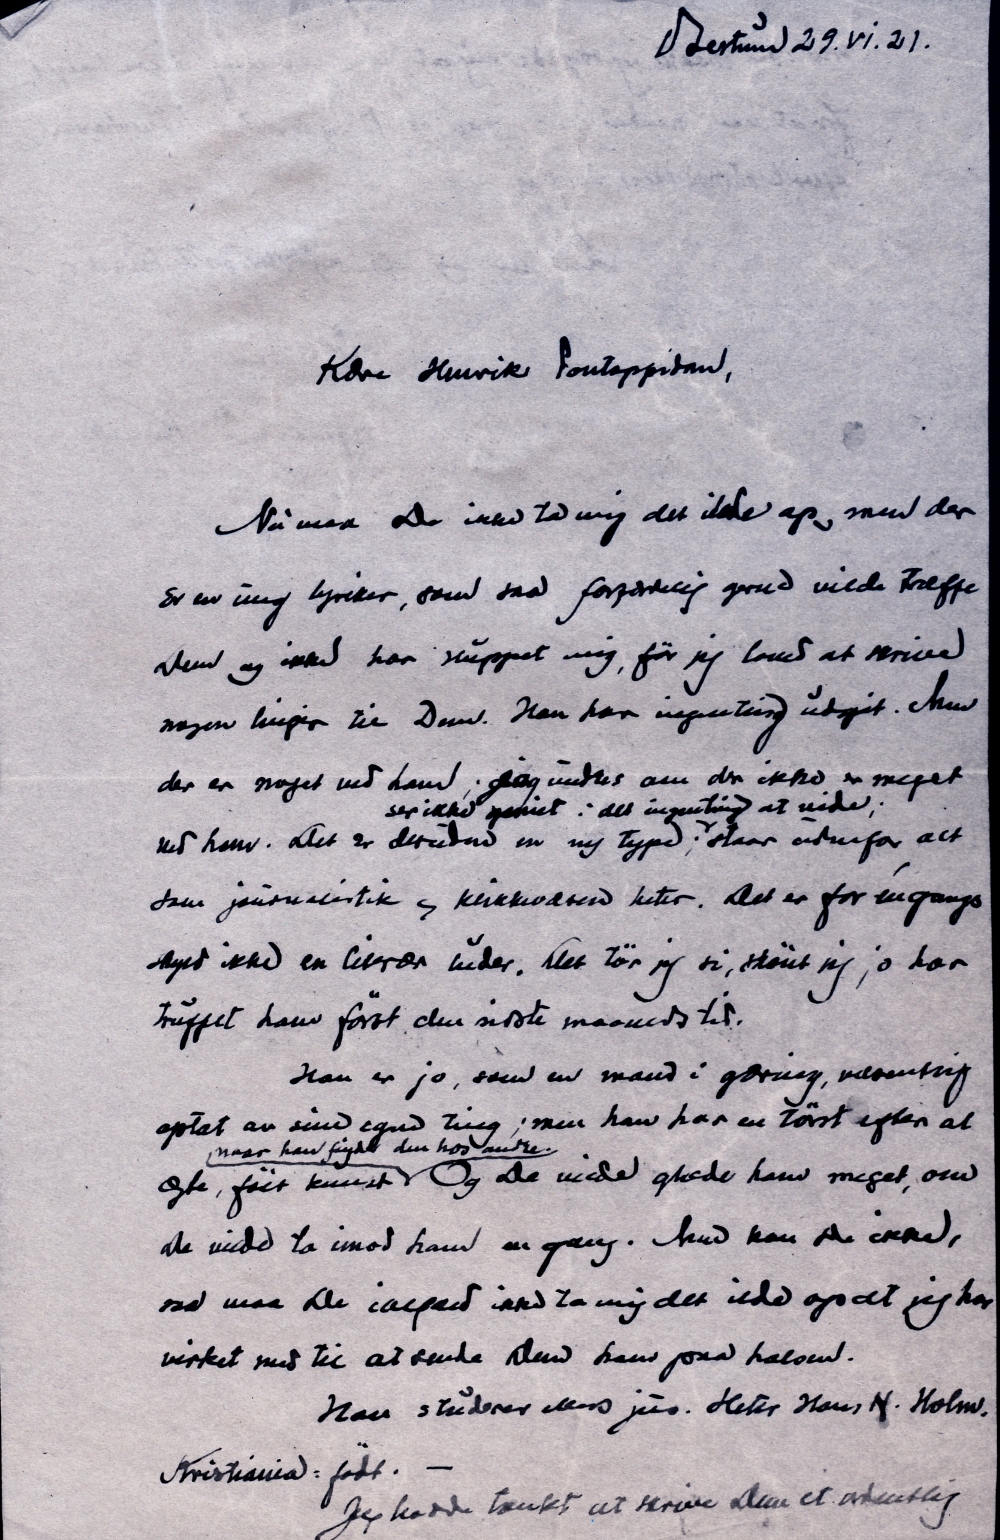 Bestum 29.VI.21.
Kære Henrik Pontoppidan,
Nu maa De ikke ta mig det ilde op, men der
er en ung lyriker, som saa forfærdelig gerne vilde træffe
Dem og ikke har sluppet mig, før jeg lovet at skrive
nogen linjer til Dem. Han har ingenting udgit. Men
der er noget ved ham; jeg undres om der ikke er meget
ser ikke geniet : det ingenting at vide;
ved ham. Det er desuden en ny type; staar udenfor alt
som journalistik og klikkevæsen heter. Det er for engangs
skyld ikke en literær luder. Det tør jeg si, skønt jeg jo har
truffet ham først den sidste maaneds tid.
Han er jo, som en mand i gæring, væsentlig
optat av sine egne ting; men han har en tørst efter al
naar han finder den hos andre.
ægte, følt kunst Og De vilde glæde ham meget, om
De vilde ta imod ham en gang. Men kan De ikke,
saa maa De ialfald ikke ta mig det ilde op at jeg har
virket med til at sende Dem ham paa halsen.
Han studerer ellers jus. Heter Hans N. Holm.
Kristiania-født. —
Jeg hadde tænkt at skrive Dem et ordentlig